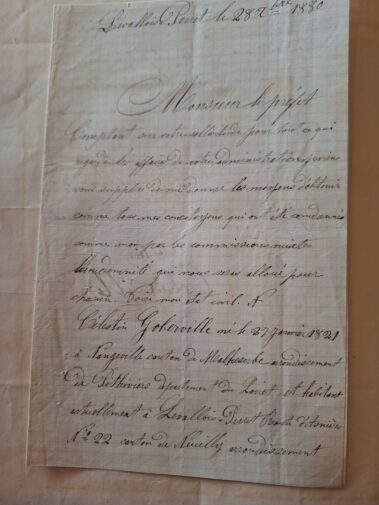 Levallois Perret le 28 Xbre 1880
Monsieur le préfet
Comptant sur votre sollicitude pour tout ce qui
regarde les affaires de votre administration, je viens
vous supplier de me donner les moyens d'obtenir
comme tous mes concitoyens qui ont été condamnés
comme moi par les commissions mixtes
l'indemnité qui nous sera alloué pour
chacun. Voici mon état civil. 
Célestin Goberville né le 27 Janvier 1821
à Nangeville canton de Malesherbe arrondissement
de Pithiviers département du Loiret, et habitant
actuellement à Levallois-Perret Route d'Asnière
No 22 canton de Neuilly arrondissement